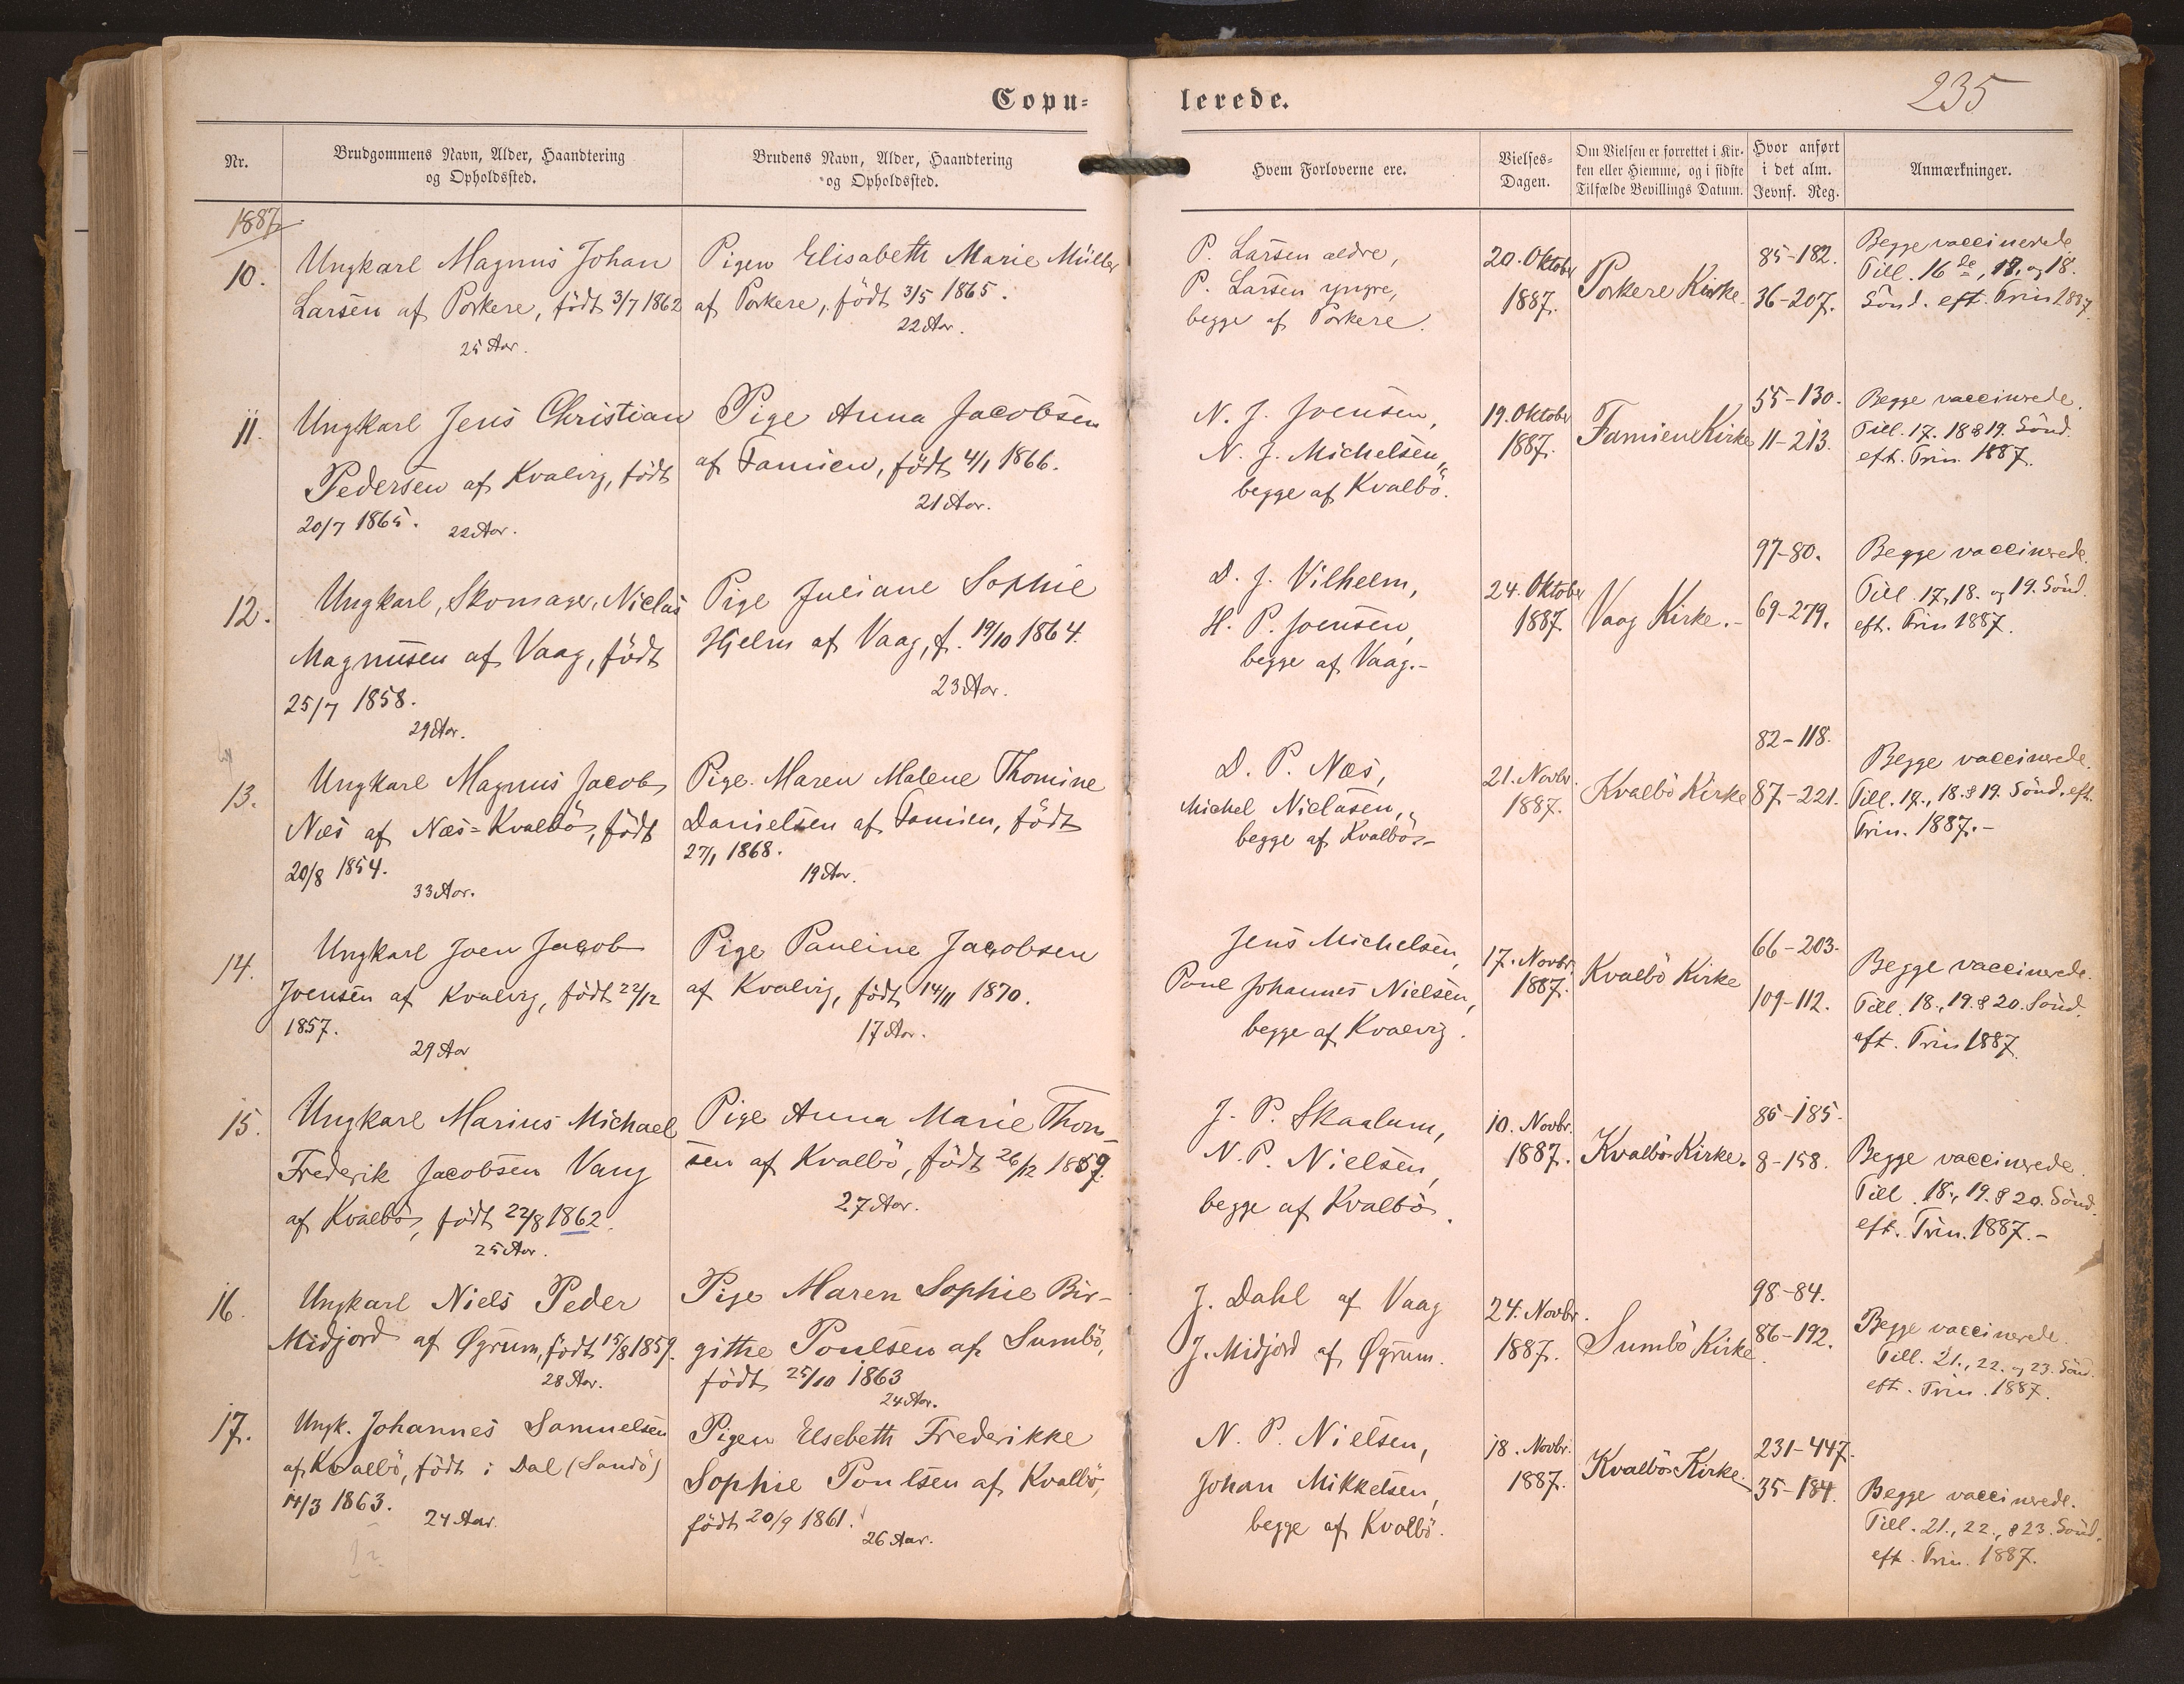 Copu-
lerede.
235
Nr.
Brudgommens Navn, Alder, Haandtering
og Opholdssted.
Brudens Navn, Alder, Haandtering
og Opholdssted.
Hvem Forloverne ere.
Vielses-
Dagen.
Om Vielsen er forrettet i Kir-
ken eller Hiemme, og i sidste
Tilfælde Bevillings Datum.
Hvor anført
i det alm.
Jevnf. Reg.
Anmærkninger.
1887
10.
Ungkarl Magnus Johan
Larsen af Porkere, födt 3/7 1862
25 Aar.
Pigen Elisabeth Marie Müller
af Porkere, födt 3/5 1865.
22 Aar.
P. Larsen ældre,
P. Larsen yngre,
begge af Porkere.
20. Oktober
1887.
Porkere Kirke.
85-182.
36-207.
Begge vaccinerede
Till. 16de, 17. og 18.
Sönd. eft. Trin 1887.
11.
Ungkarl Jens Christian
Pedersen af Kvalvig, födt
20/7 1865.
22 Aar.
Pige Anna Jacobsen
af Famien, födt 4/1 1866.
21 Aar.
N. J. Joensen,
N. J. Michelsen,
begge af Kvalbö.
19. Oktober
1887.
Famien Kirke
55-130.
11-213.
Begge vaccinerede.
Till. 17. 18 & 19. Sönd.
eft. Trin. 1887.
12.
Ungkarl, Skomager, Niclas
Magnusen af Vaag, födt
25/7 1858.
29 Aar.
Pige Juliane Sophie
Hjelm af Vaag, f. 19/10 1864.
23 Aar.
D. J. Vilhelm,
H. P. Joensen,
begge af Vaag.-
24. Oktober
1887.
Vaag Kirke.-
97-80.
69-279.
Begge vaccinerede.
Till. 17, 18. og 19. Sönd.
eft. Trin 1887.
13.
Ungkarl Magnus Jacob
Næs af Næs=Kvalbö, födt
20/8 1854.
33 Aar.
Pige Maren Malene Thomine
Danielsen af Famien, födt
27/1 1868.
19 Aar.
D. P. Næs,
Michel Niclasen,
begge af Kvalbö.-
21. Novbr.
1887.
Kvalbö Kirke
82-118.
87-221.
Begge vaccinerede.
Till. 17., 18. & 19. Sönd. eft.
Trin. 1887.-
14.
Ungkarl Joen Jacob
Joensen af Kvalvig, födt 22/12
1857.
29 Aar
Pige Pauline Jacobsen
af Kvalvig, födt 14/11 1870.
17 Aar.
Jens Michelsen,
Poul Johannes Nielsen,
begge af Kvalvig.
17. Novbr.
1887.
Kvalbö Kirke
66-203.
109-112.
Begge vaccinerede.
Till. 18., 19. & 20. Sönd.
eft. Trin 1887.
15.
Ungkarl Marius Michael
Frederik Jacobsen Vang
af Kvalbö, födt 22/8 1862.
25 Aar.
Pige Anna Marie Thom-
sen af Kvalbö, födt 26/12 1859.
27 Aar.
J. P. Skaalum,
N. P. Nielsen,
begge af Kvalbö.
10. Novbr.
1887.
Kvalbö Kirke.
86-185.
8-158.
Begge vaccinerede.
Till. 18., 19. & 20. Sönd.
eft. Trin. 1887.-
16.
Ungkarl Niels Peder
Midjord af Øgrum, födt 15/8 1859.
28 Aar.
Pige Maren Sophie Bir-
githe Poulsen af Sumbö,
födt 25/10 1863
24 Aar.
J. Dahl af Vaag
J. Midjord af Øgrum.
24. Novbr.
1887.
Sumbö Kirke.
98-84.
86-192.
Begge vaccinerede.
Till. 21., 22. og 23. Sönd.
eft. Trin. 1887.
17.
Ungk. Johannes Samuelsen
af Kvalbö, födt i Dal (Sandö)
14/3 1863.
24 Aar.
Pigen Elsebeth Frederikke
Sophie Poulsen af Kvalbö,
födt 20/9 1861.
26 Aar.
N. P. Nielsen,
Johan Mikkelsen,
begge af Kvalbö.
18. Novbr.
1887.
Kvalbö Kirke.
231-447.
35-184.
Begge vaccinerede.
Till. 21., 22., & 23. Sönd.
eft. Trin. 1887.